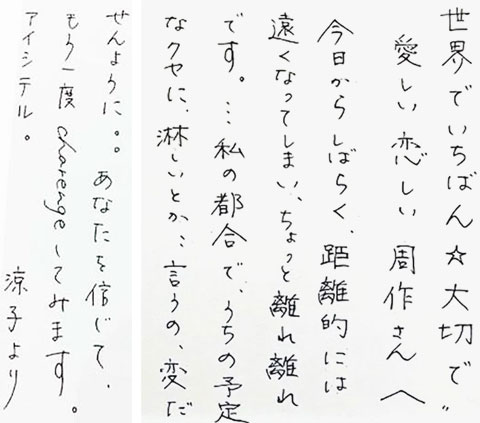 世界でいちばん☆大切で〃
愛しい恋しい周作さんへ
今日からしばらく、距離的には
遠くなってしまい、ちょっと離れ離れ
です。…私の都合で、うちの予定
なクセに、淋しいとか、言うの、変だ
せんように。。あなたを信じて、
もう一度charengeしてみます。
アイシテル。涼子より